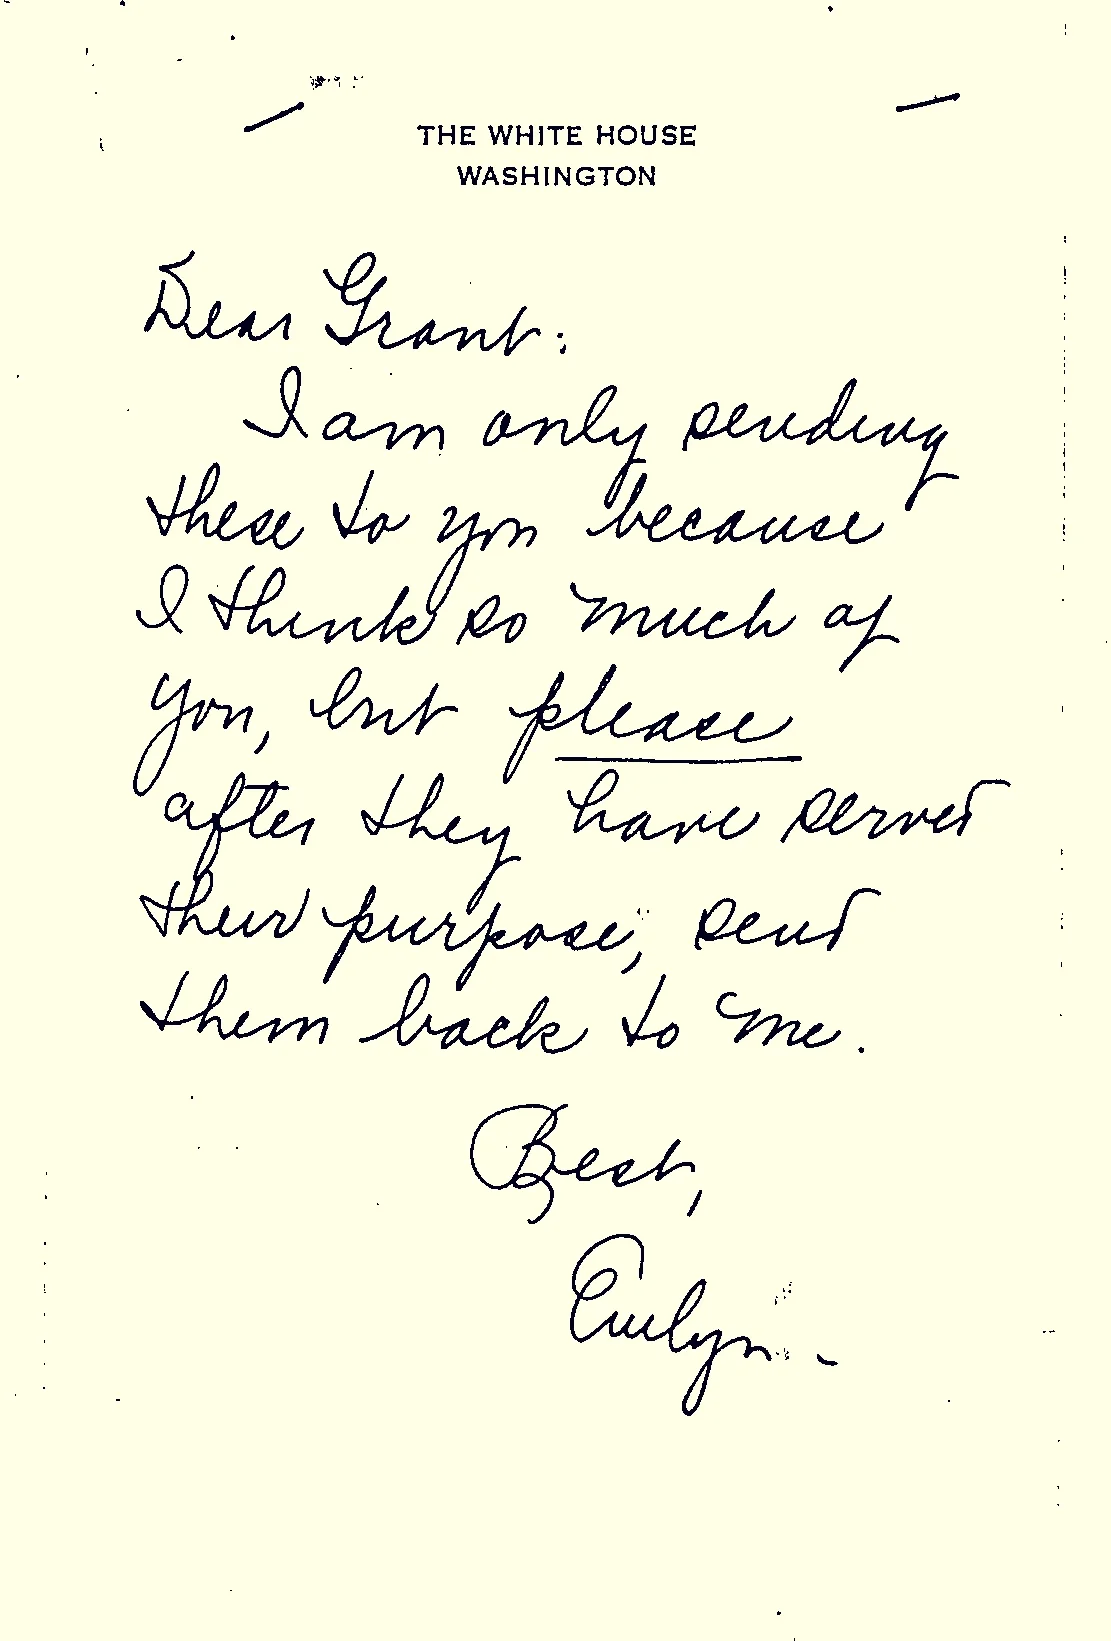 THE WHITE HOUSE
WASHINGTON
Dear Grant:
I am only sending
these to you because
I think so much of
you, but please
after they have served
their purpose, send
them back to me.
Best,
Evelyn -